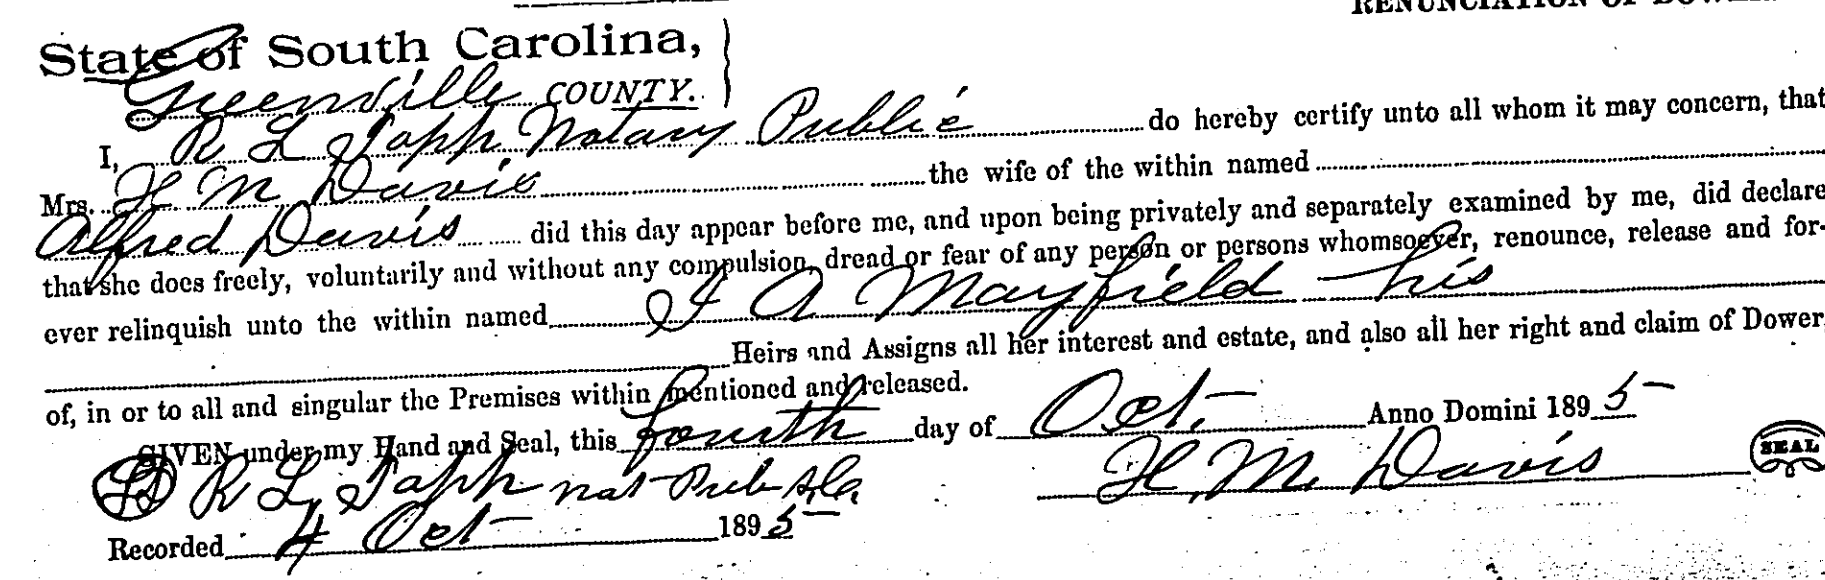 RENUNCIATION OF DOWER
State of South Carolina,
Greenville COUNTY.
I, R L Tapp Notary Public do hereby certify unto all whom it may concern, that
Mrs. H M Davis the wife of the within named
Alfred Davis did this day appear before me, and upon being privately and separately examined by me, did declare
that she does freely, voluntarily and without any compulsion, dread or fear of any person or persons whomsoever, renounce, release and for-
ever relinquish unto the within named A Mayfield his
Heirs and Assigns all her interest and estate, and also all her right and claim of Dower,
of, in or to all and singular the Premises within mentioned and released.
GIVEN under my Hand and Seal, this fourth day of Oct. Anno Domini 1895
LS R L, Tapp Not Pub S.C. H. M. Davis SEAL
Recorded 4 Oct 1895